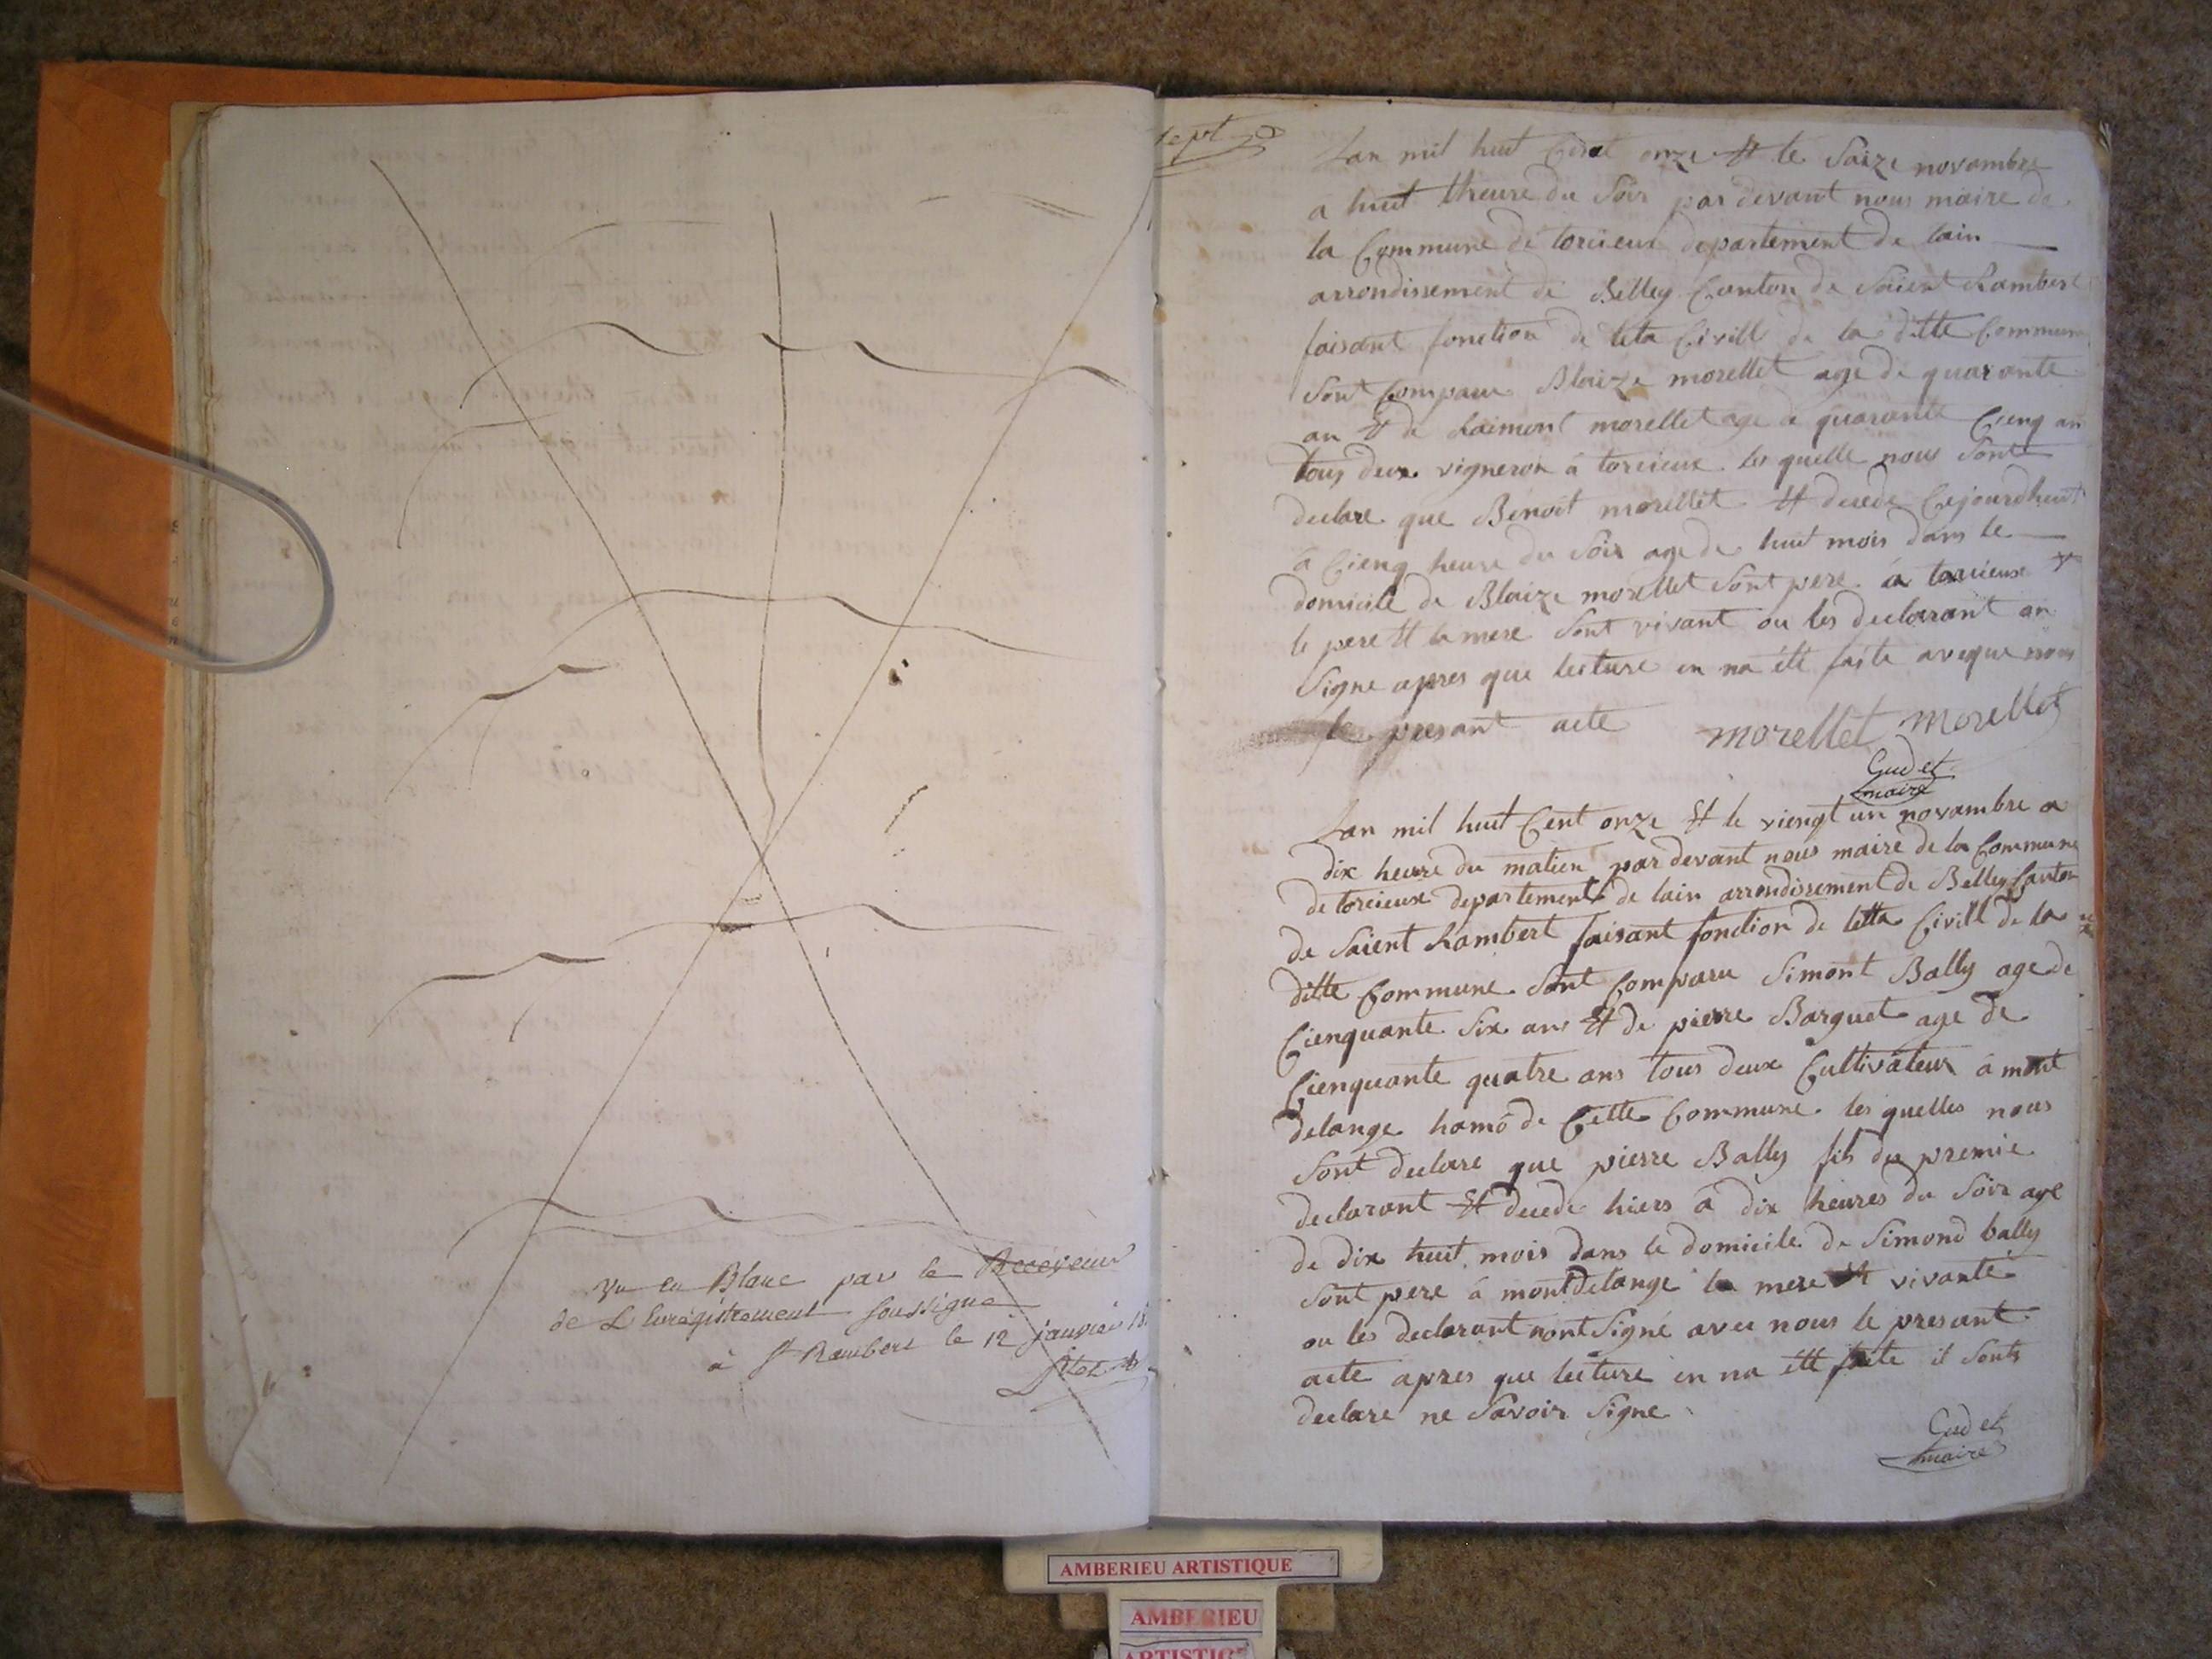 vu en Blanc par le Receveur
de L'Enregistrement soussigné
à St Rambert le 12 janvier 18
sept
Lan mil huit Cent onze Et le Saize novambre
a huit theure du Soir par devant nous maire de
la Commune de torcieux departement de lain
arrondissement de Belley Canton de Saient Rambert
faisant fonction de leta Civill de la ditte Commune
Sont Comparu Blaize morellet age de quarante
an Et de Raimont morellet age de quarante Cienq an
tous deux vigneron à torcieux les quelle nous Sont
declare que Benoit morellet Et decede Cejourdhuit
a Cienq heure du Soir age de huit mois dans le
domicile de Blaize morellet Sont pere á torcieux
le pere Et la mere Sont vivant ou les declarant on
Signe apres que lecture en na été faite aveque nous
le presant acte morellet morellet
Gudet
maire
Lan mil huit Cent onze Et le viengt un novambre a
dix heure du matien par devant nous maire de la Commune
de torcieux departement de lain arrondissement de Belley Canton
de Saient Rambert faisant fonction de letta Civill de la
ditte Commune Sont Comparu Simont Bally age de
Cienquante Six ans Et de pierre Barquet age de
Cienquante quatre ans tous deux Cultivateur á mont
delange hamó de Cette Commune les quelles nous
Sont declare que pierre Bally fils du premie
declarant Et decede hiers a dix heures du Soir age
de dix huit mois dans le domicile de Simond bally
Sont pere á montdelange la mere Et vivante
ou les declarant nont Signé avec nous le presant
acte apres que lecture en na été faite il Sont
declare ne Savoir Signe
Gudet
maire
AMBERIEU ARTISTIQUE
AMBERIEU